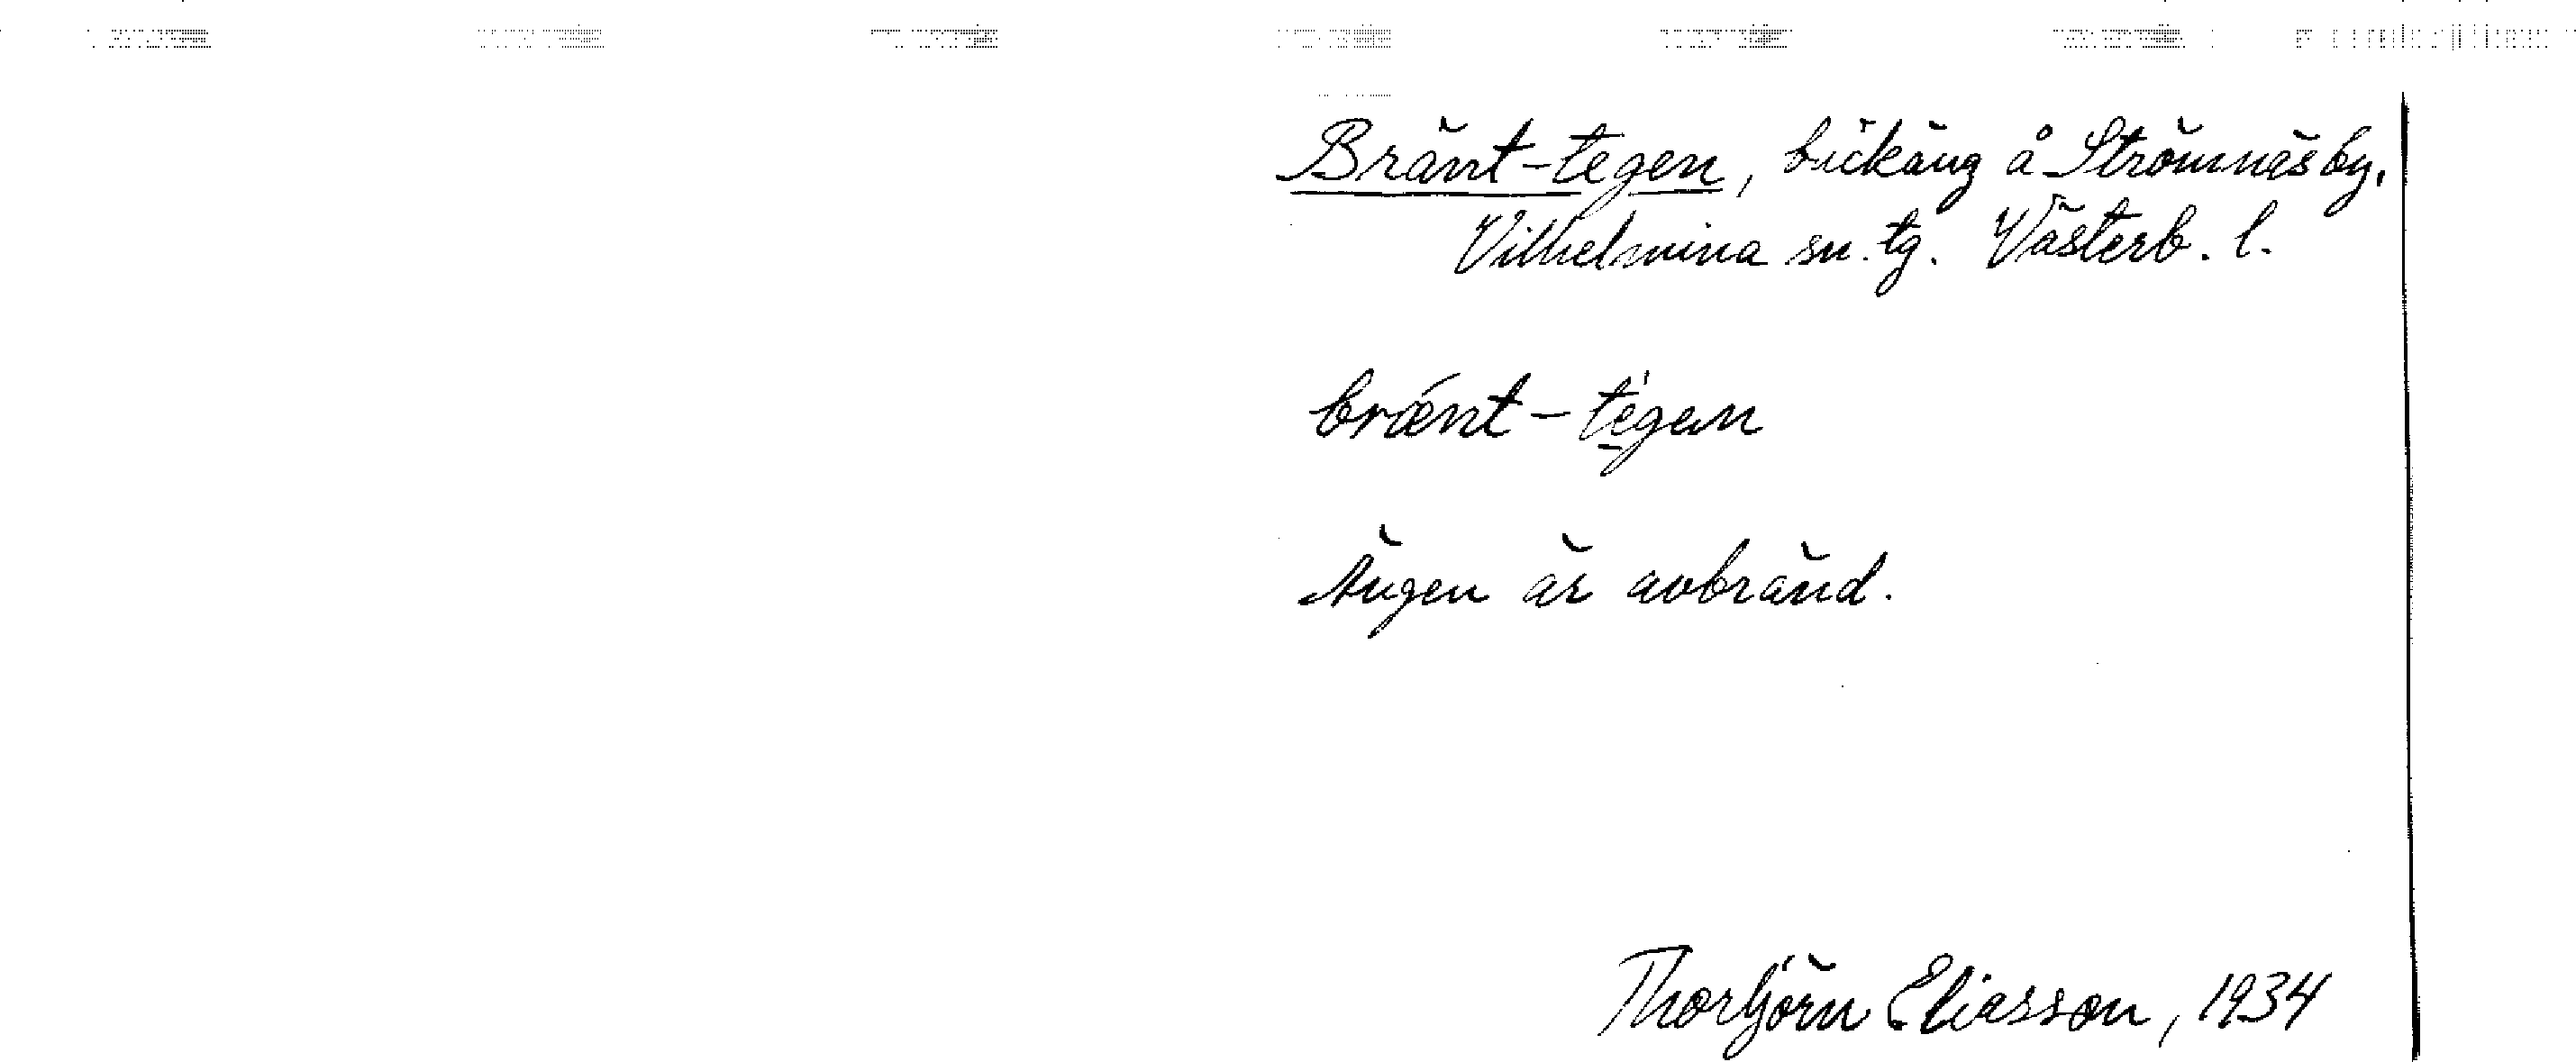 Bränt-tegen, bäckäng å Strömnäs by,
Vilhelmina sn. tg. Västerb. l.
brænt-tégen
Ängen är avbränd.
Thorbjörn Eliasson, 1934